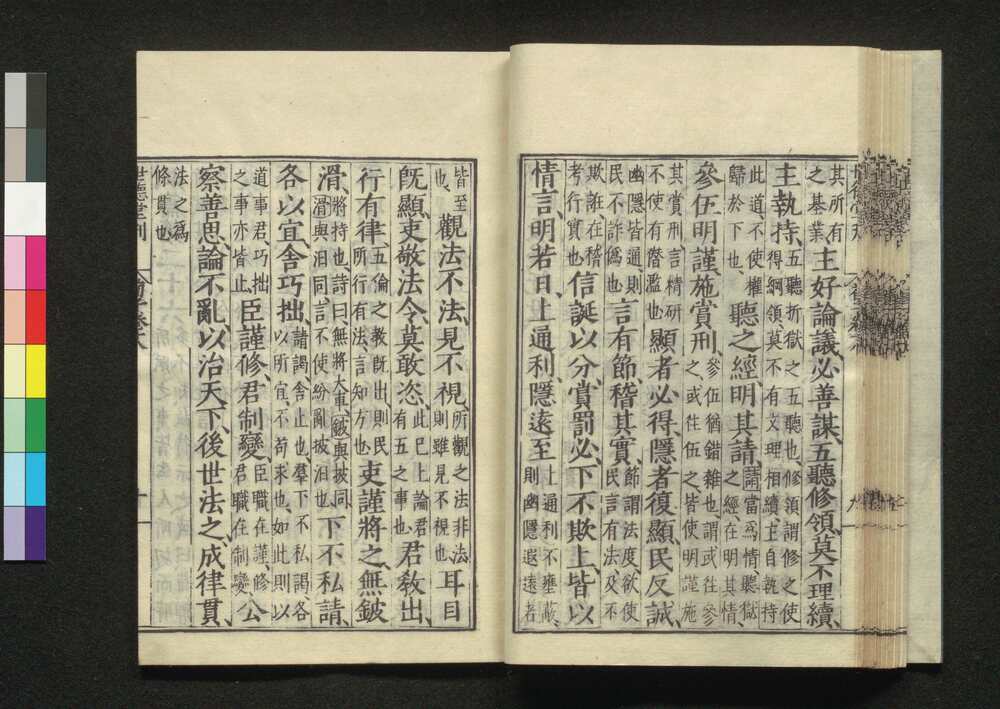 其所有
之基業主好論議必善謀五聽修領莫不理續
主執持五聽折獄之五聽也修領謂修之使
得綱領莫不有文理相續主自執持
此道不使權
歸於下也聽之經明其請請當爲情聽獄
之經在明其情
參伍明謹施賞刑參伍猶錯雜也謂或往參
之或往伍之皆使明謹施
其賞刑言精研
不使有潛濫也顯者必得隱者復顯民反誠
幽隱皆通則
民不詐僞也言有節稽其實節謂法度欲使
民言有法及不
欺誑在稽
考行實也信誕以分賞罰必下不欺上皆以
情言明若日上通利隱遠至上通利不壅蔽
則幽隱遐遠者
皆至
也觀法不法見不視所觀之法非法
則雖見不視也耳目
旣顯吏敬法令莫敢恣此已上論君
有五之事也君敎出
行有律五倫之敎旣出則民
所行有法言知方也吏謹將之無鈹
滑將持也詩曰無將大車鈹與披同
滑與汩同言不使紛亂披汩也下不私請
各以宜舍巧拙請謁舍止也羣下不私謁各
以所宜不苟求也如此則以
道事君巧拙
之事亦皆止臣謹修君制變臣職在謹修
君職在制變公
察善思論不亂以治天下後世法之成律貫
法之爲
條貫也
世德堂刊